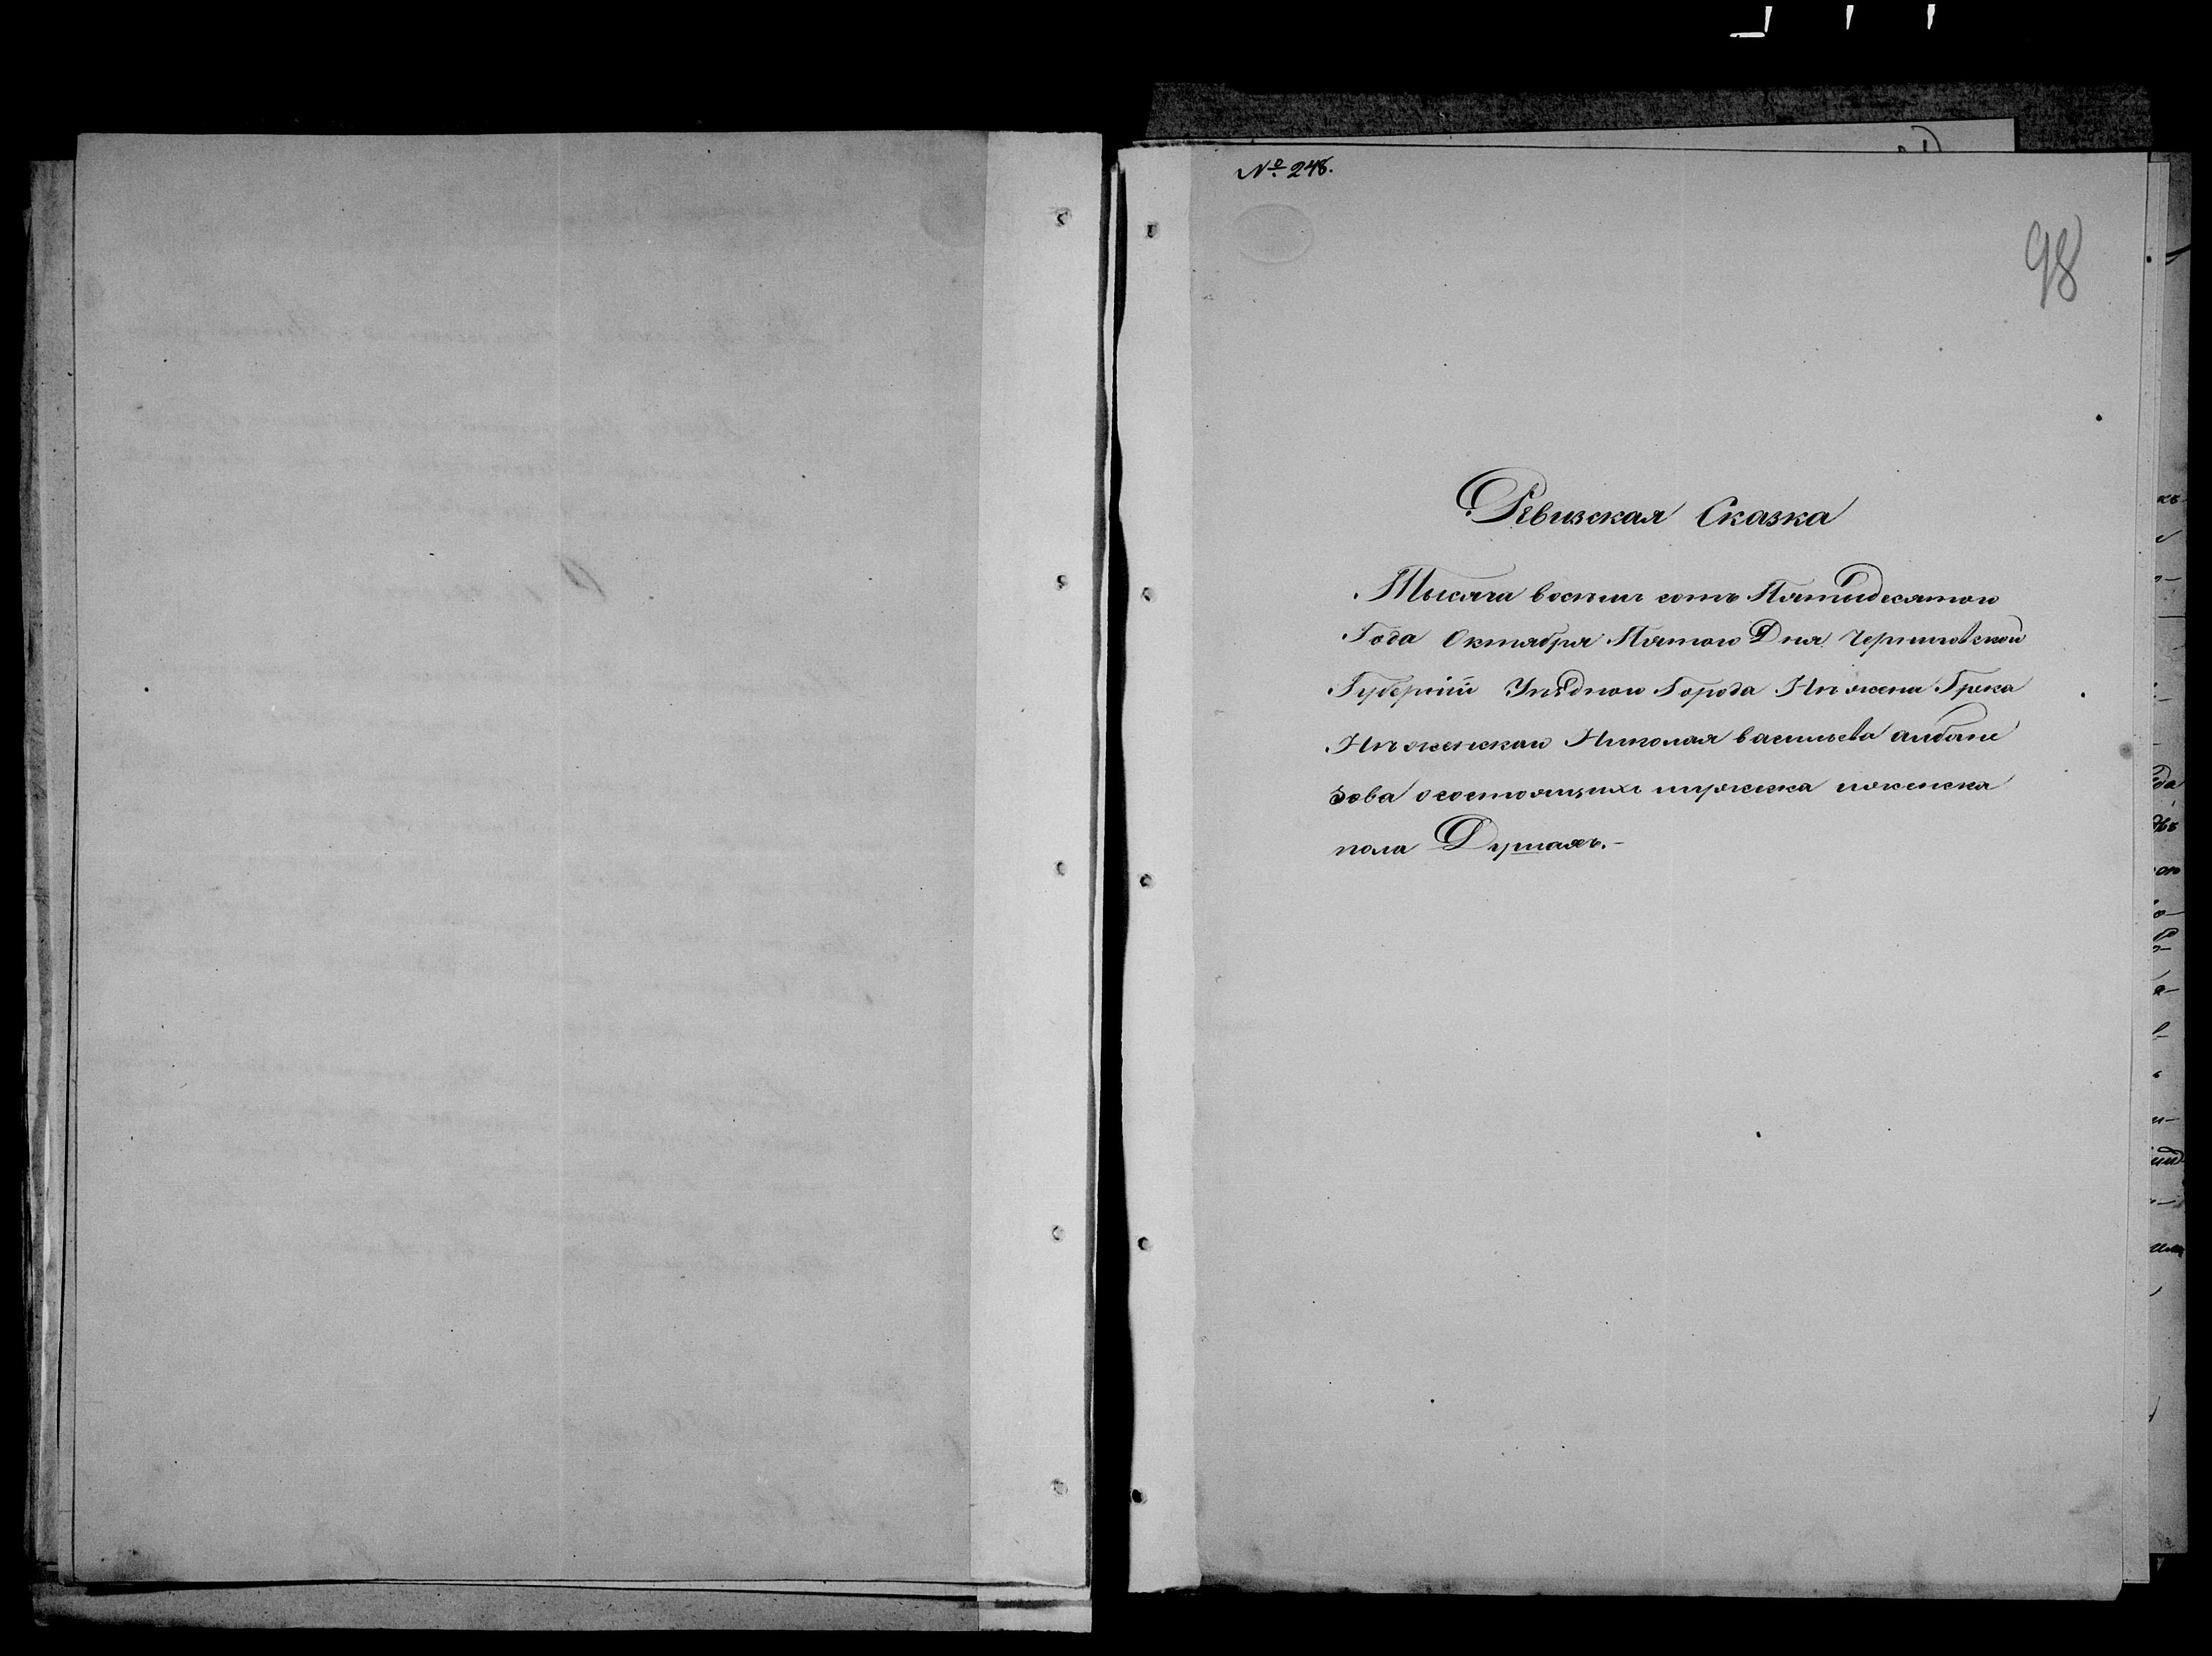 № 248.
98
Ревизская Сказка
Тысяча восемь сотъ Пятидесятого
Года Октября Пятого Дня Черниговской
Губерніи Уѣздного Города Нѣжена Грека
Нѣженскаго Николая васильева албане
зова осостоящихъ мужеска иженска
пола Душахъ.-